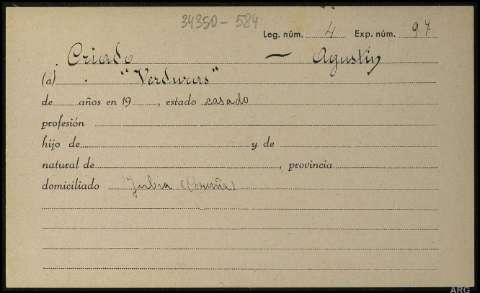 34350-584
Leg. núm. 4 Exp. núm. 97
Criado — Agustín
(a) "Verduras"
de años en 19 , estado casado
profesión
hijo de y de
natural de , provincia
domiciliado (Coruña)
ARG